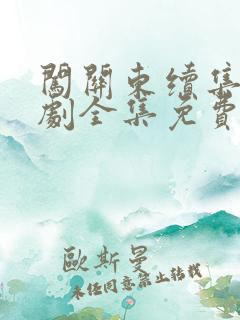 闖關東續集
劇全集免費
歐斯曼
未經同意禁止转載